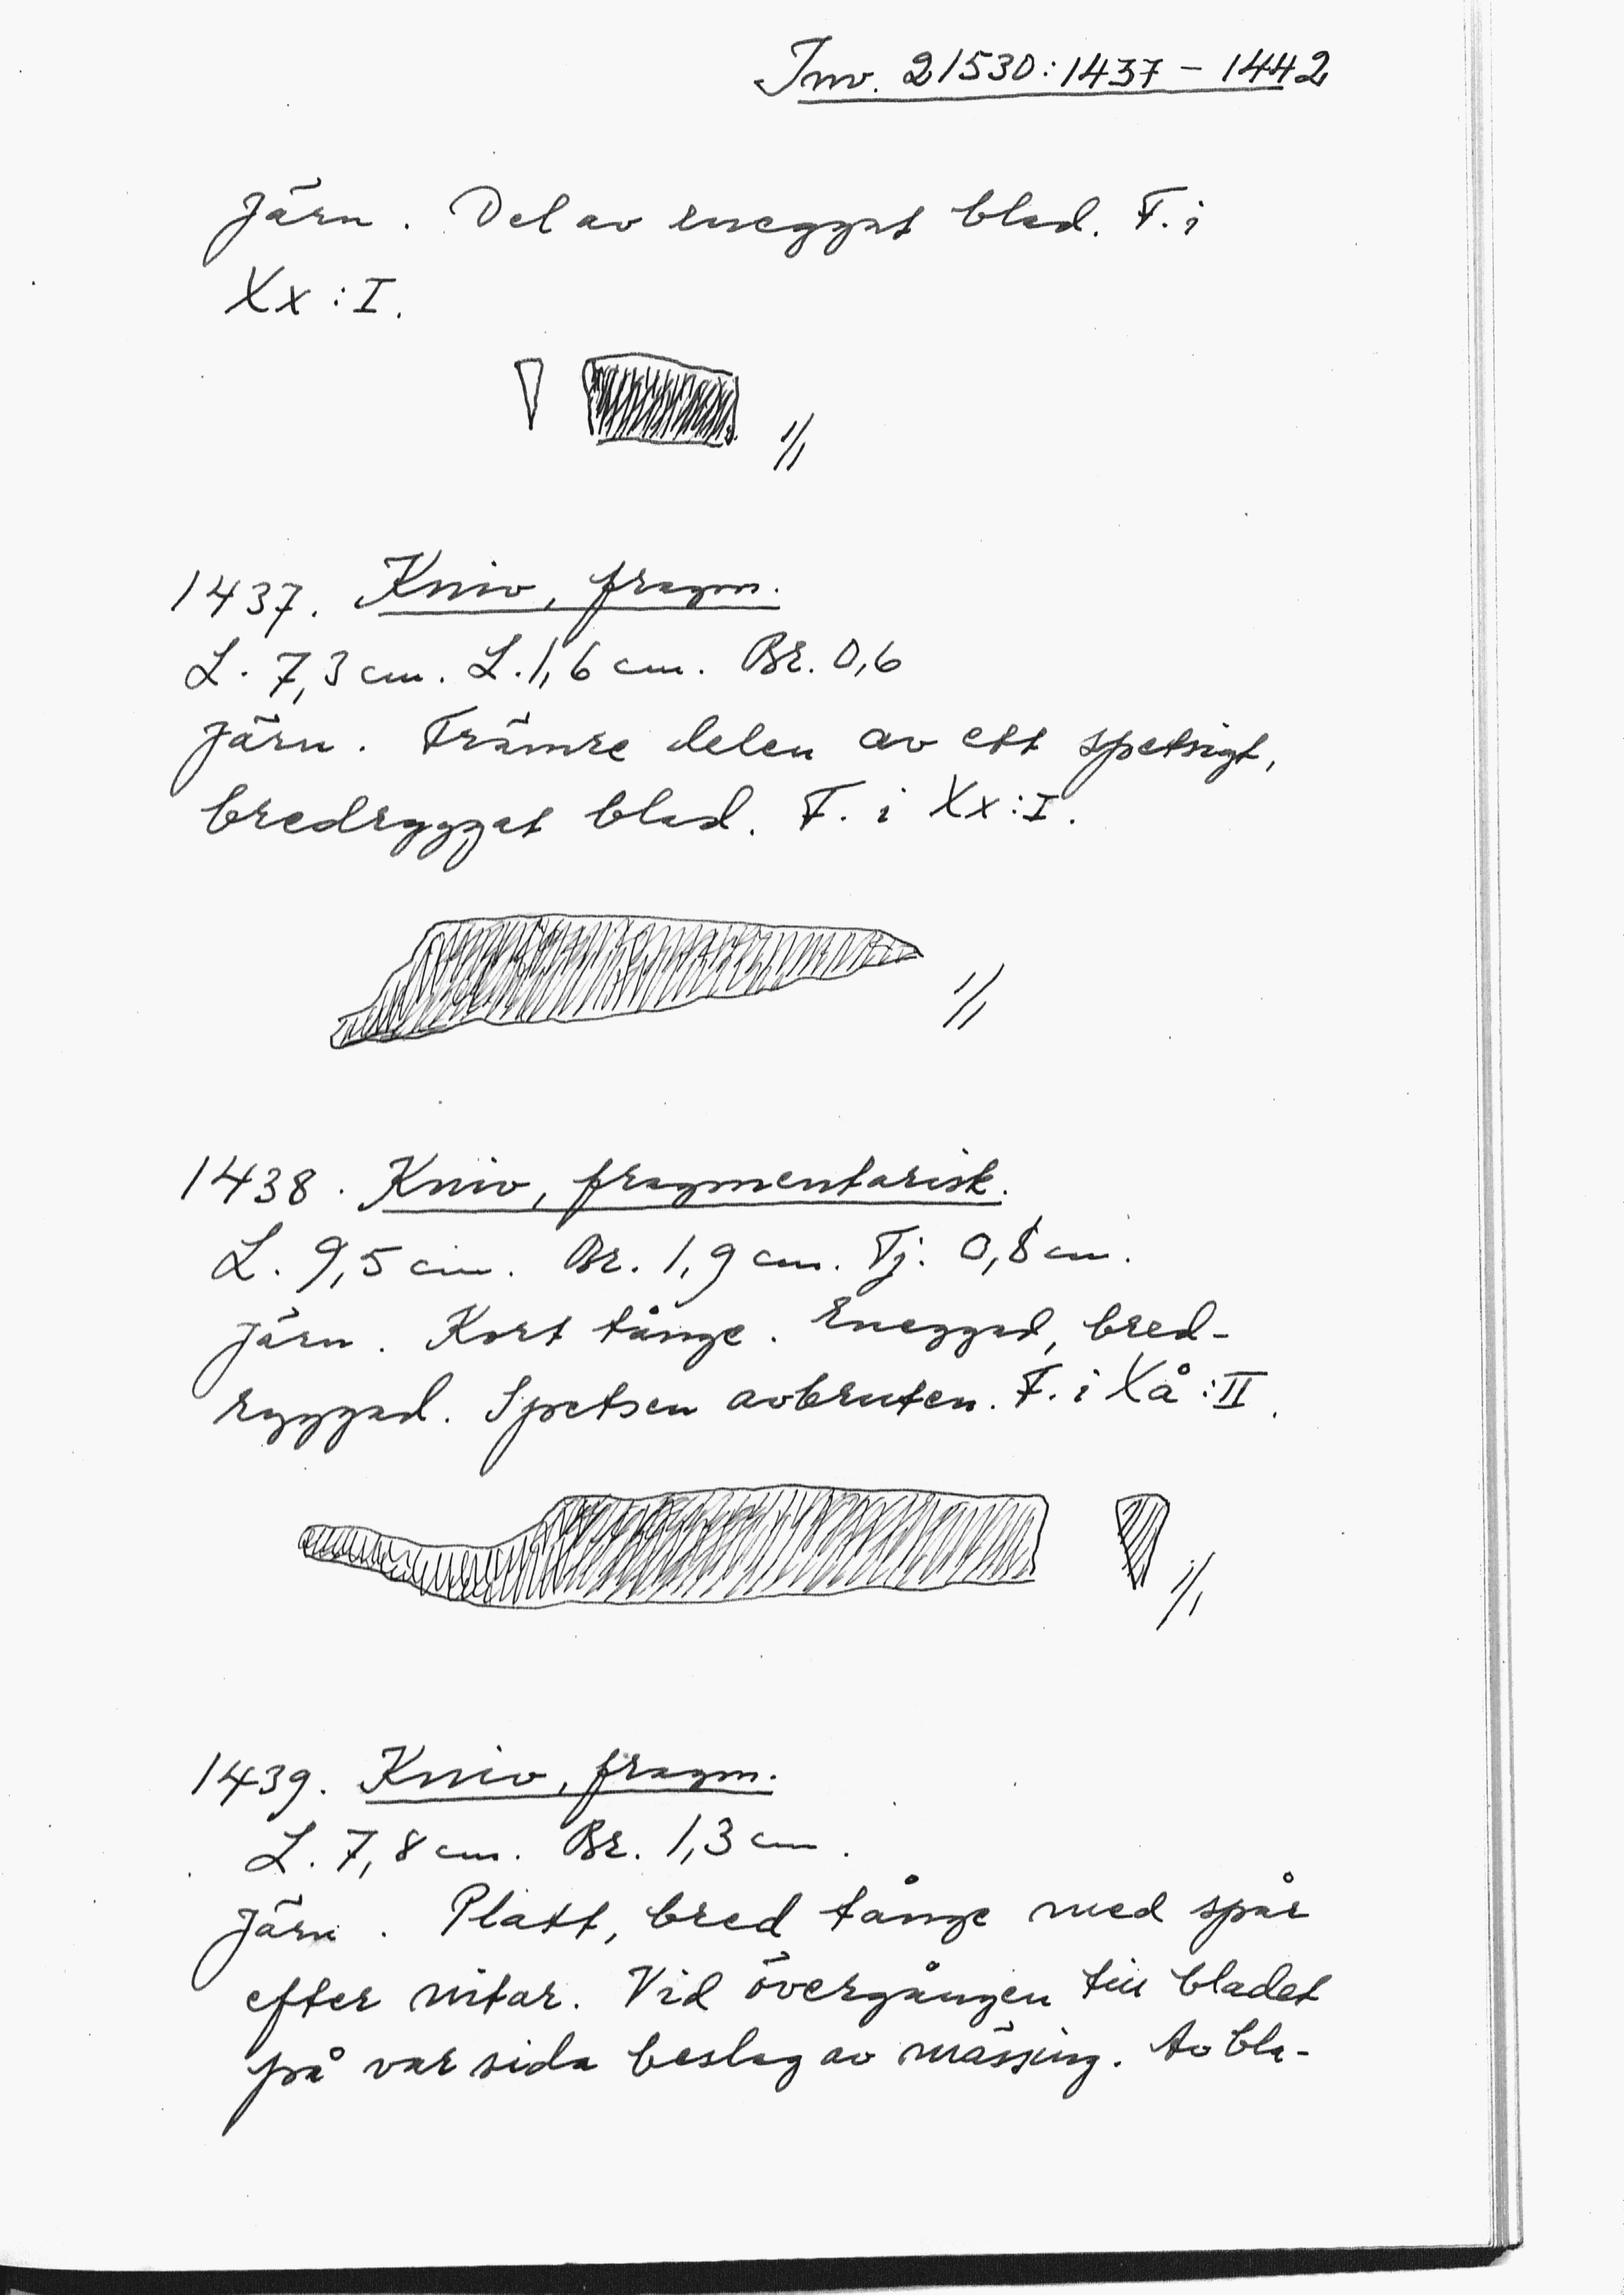 Inv. 21530:1437 – 1442
Järn. Del av eneggat blad. F. i
Xx:I.
1/1
1437. Kniv, fragm.
L. 7,3 cm. L. 1,6 cm. Br. 0,6
Järn. Främre delen av ett spetsigt,
bredryggat blad. F. i Xx:I.
1/1
1438. Kniv, fragmentarisk.
L. 9,5 cm. Br. 1,9 cm. Tj. 0,8 cm.
Järn. Kort tånge. Eneggad, bred-
ryggad. Spetsen avbruten. F. i Xå:II.
1/1
1439. Kniv, fragm.
L. 7,8 cm. Br. 1,3 cm.
Järn. Platt, bred tånge med spår
efter nitar. Vid övergången till bladet
på var sida beslag av mässing. Av bla-